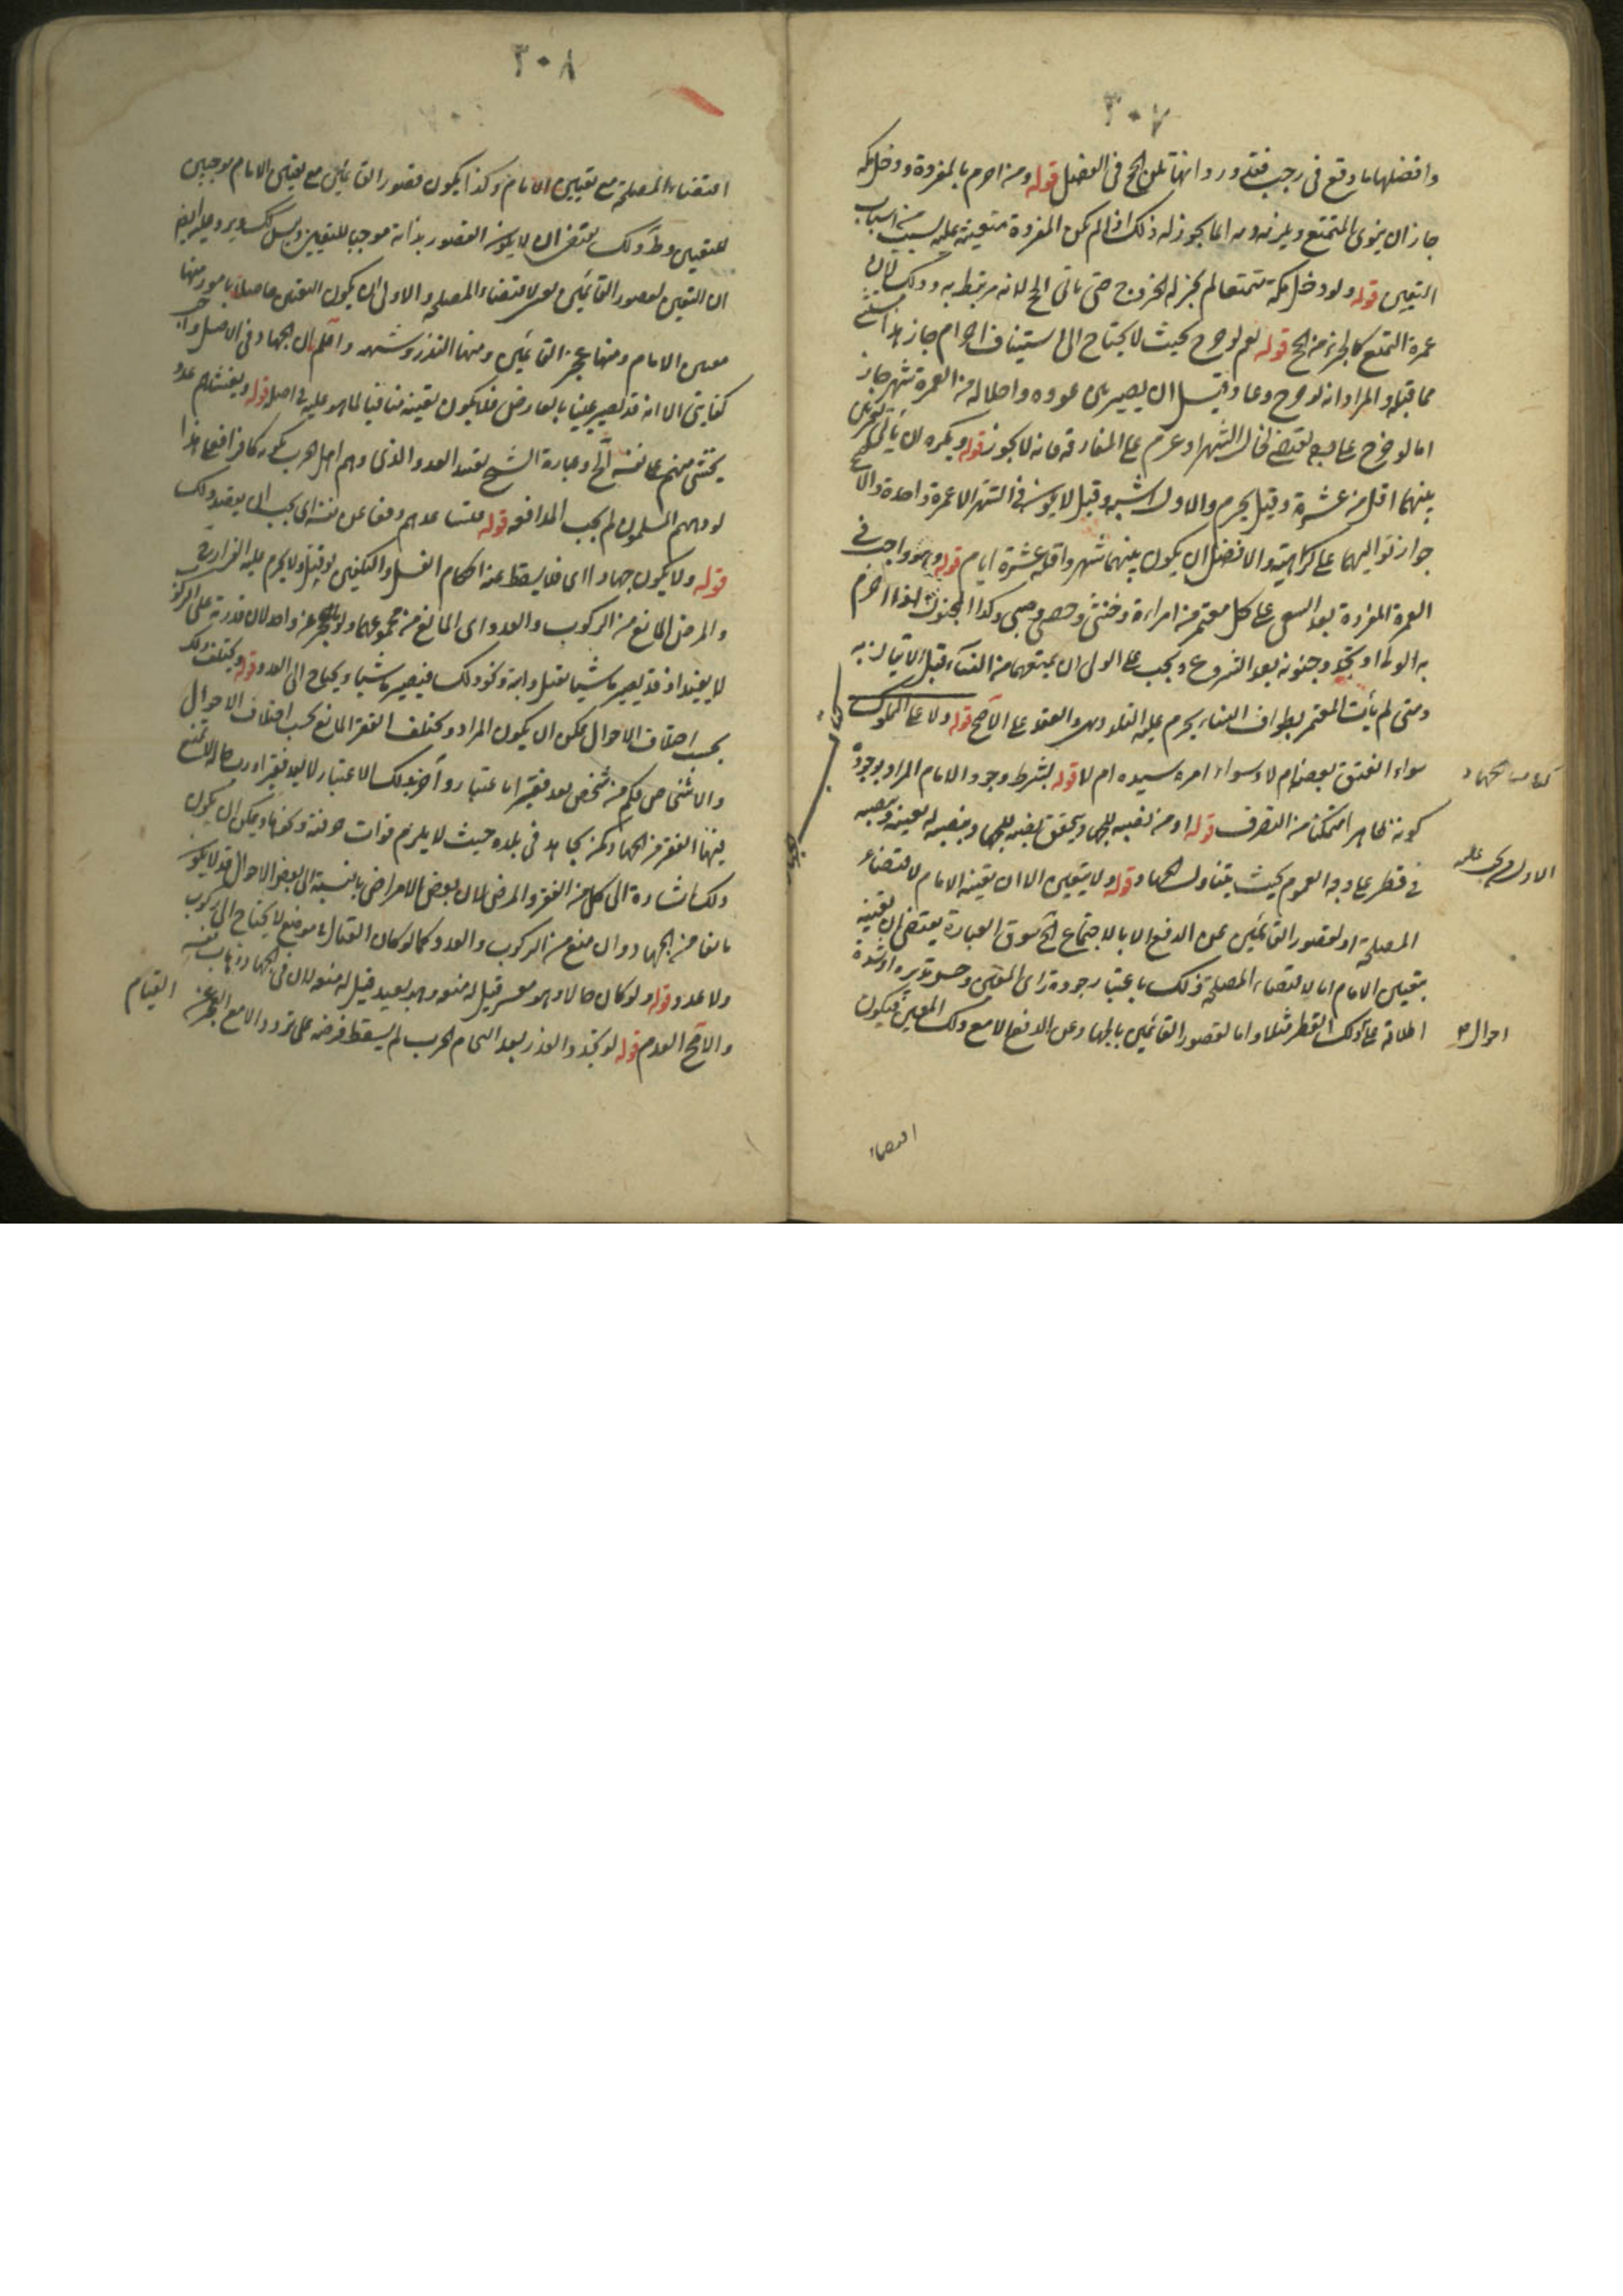 ٣٠٧
وافضلها ما وقع في رجب فقد ورد انها تلي الحج في الفضل قوله ومن احرم بالمفردة ودخل مكة
جاز ان ينوي التمتع ويلزمه دم انما يجوز له ذلك اذا لم تكن المفردة متعينة عليه بسبب من اسباب
التعيين قوله ولو دخل مكة متمتعا لم يجز له الخروج حتى ياتي الحج لانه مرتبط به وذلك لان
عمرة التمتع كالجزء من الحج قوله نعم لو خرج بحيث لا يحتاج الى استيناف احرام جاز هذا مستثنى
مما قبله والمراد انه لو خرج وعاد قبل ان يصير بين عوده واحلاله من العمرة شهر جاز
اما لو خرج على وجه يقتضي تخلل الشهر او عزم على المفارقة فانه لا يجوز قوله ويكره ان ياتي بعمرتين
بينهما اقل من عشرة وقيل يحرم والاول اشبه وقيل لا يكون في الشهر الا عمرة واحدة والاصح
جواز تواليهما على كراهية والافضل ان يكون بينهما شهر واقله عشرة ايام قوله وهو واجب في
العمرة المفردة بعد السعي على كل معتمر من امراة وخنثى وخصي وصبي وكذا المجنون اذا احرم
به الولي او تجدد جنونه بعد الشروع ويجب على الولي ان يمنعهما من النساء قبل الاتيان به
ومتى لم يأت المعتمر بطواف النساء يحرم عليه التلذذ بهن والعقد على الاصح قوله ولا على المملوك
سواء انعتق بعضه ام لا وسواء امره سيده ام لا قوله بشرط وجود الامام المراد بوجوده
كونه ظاهرا متمكنا من التصرف قوله او من نصبه للجهاد ويتحقق نصبه للجهاد بنصبه له بعينه وبنصبه
في قطر على وجه العموم بحيث يتناول الجهاد قوله ولا يتعين الا ان يعينه الامام لاقتضاء
المصلحة او لقصور القائمين عن الدفع الا بالاجتماع الخ سوق العبارة يقتضي ان تعينه
بتعيين الامام اما لاقتضاء المصلحة ذلك باعتبار جودة راى المعين وحسن تدبيره او شدة
اطلاعه على ذلك القطر مثلا واما لقصور القائمين بالجهاد وعن الدفع الا مع ذلك المعين فيكون
كتاب الجهاد
احوال
اقتضاء
٣٠٨
اقتضاء المصلحة مع تعيين الامام وكذا يكون قصور القائمين مع تعيين الامام موجبين
للتعيين وظ ذلك يقتضي ان لا يكون القصور بذاته موجبا للتعيين وليس كك ويرد عليه ايضا
ان التعيين لقصور القائمين لاقتضاء المصلحة والاولى ان يكون التعيين حاصلا بامور منها
تعيين الامام ومنها عجز القائمين ومنها النذر وشبهه واعلم ان الجهاد في الاصل واجب
كفايتي الا انه قد يصير عينيا بالعارض فلا يكون تعيينه منافيا لما هو عليه في اصله قوله او يغشاهم عدو
يخشى منهم على نفسه الخ وعبارة الشيخ تقيد العدو الذي دهم اهل حرب بكونه كافرا فعلى هذا
لو دهمهم المسلمون لم يجب المدافعة قوله فيساعدهم دفعا عن نفسه اي يجب ان يقصد ذلك
قوله ولا يكون جهادا اي فلا يسقط عنه احكام الغسل والتكفين لو قتل ولا يحرم عليه الفرار
والمرض المانع من الركوب والعدو اى المانع من مجموعهما ولو عجز عن واحد لان قدرته على الركوب
لا يفيد اذ قد يصير ماشيا بقتل دابته ونحو ذلك فيصير ماشيا ويحتاج الى العدو قوله ويختلف ذلك
بحسب اختلاف الاحوال يمكن ان يكون المراد ويختلف الفقر المانع بحسب اختلاف الاحوال
والاشخاص فكم من شخص يعد فقيرا باعتبار وآخر بذلك الاعتبار لا يعد فقيرا
فيها الفقر من الجهاد كمن يجاهد في بلده حيث لا يلزم فوات حرفته ونحوها ويمكن ان يكون
ذلك اشارة الى كل من الفقر والمرض لان بعض الامراض بالنسبة الى بعض الاحوال قد لا يكون
مانعا من الجهاد وان منع من الركوب والعدو كما لو كان القتال في موضع لا يحتاج الى ركوب
ولا عدو قوله ولو كان حالا وهو معسر قيل له منعه وهو بعيد قيل له منعه لان في الجهاد ذهاب نفسه
والاصح العدم قوله لو تجدد العذر بعد التحام الحرب لم يسقط فرضه على تردد الا مع العجز عن القيام